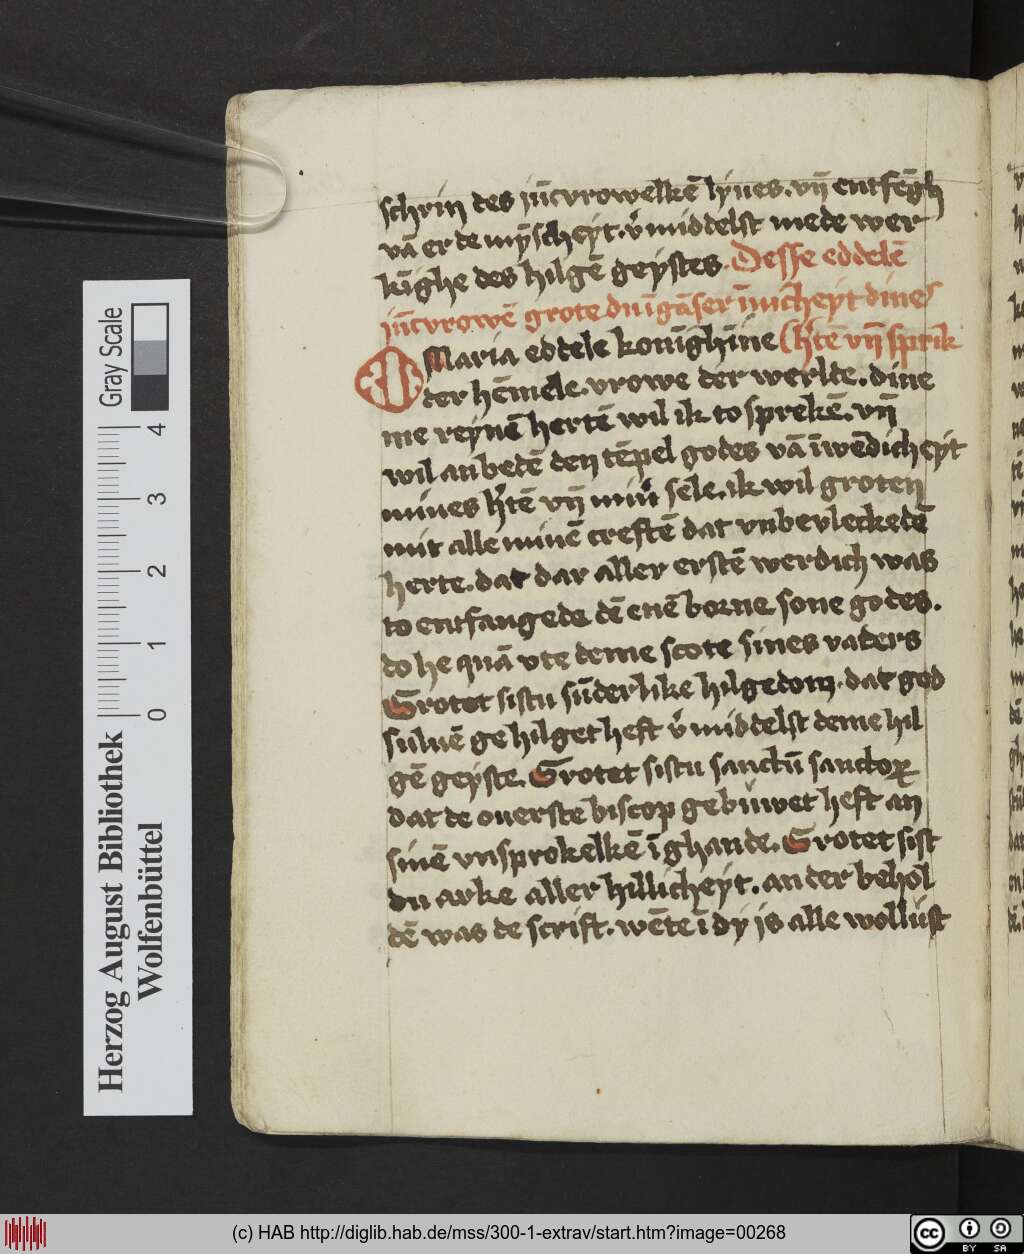 schrin des jūcvrowelkē lyues. vñ entfēgh
vā er de mȳscheyt. v̄middelst mede wer
kīghe des hilgē geystes. Desse eddelē
jūcvrowē grote dn īgāser īnicheyt dines
O Maria eddele konīghīne (h̄tē vñ sprik
der hēmele. vrowe der werlde. dine
me reynē hertē wil ik to sprekē. vñ
wil anbedē den tēpel godes vā īwēdicheyt
mines h̄tē vñ min̄ sele. ik wil groten
mit alle minē creftē dat vnbevleckedē
herte. dat dar aller erstē werdich was
to entfangede dē enē borne sone godes.
do he quā vte deme scote sines vaders
Grotet sistu sūderlike hilgedom. dat god
suluē ge hilget heft v̄middelst deme hil
gē geyste. Grotet sistu sanctū sanctoꝝ
dat de ouerste biscop gebuwet heft an
sinē vnsprokelkē īghande. Grotet sist
du arke aller hillicheyt. an der behol
dē was de scrift. wēte ī dy is alle wollust
Gray Scale
0 1 2 3 4
Herzog August Bibliothek
Wolfenbüttel
(c) HAB http://diglib.hab.de/mss/300-1-extrav/start.htm?image=00268
cc BY SA